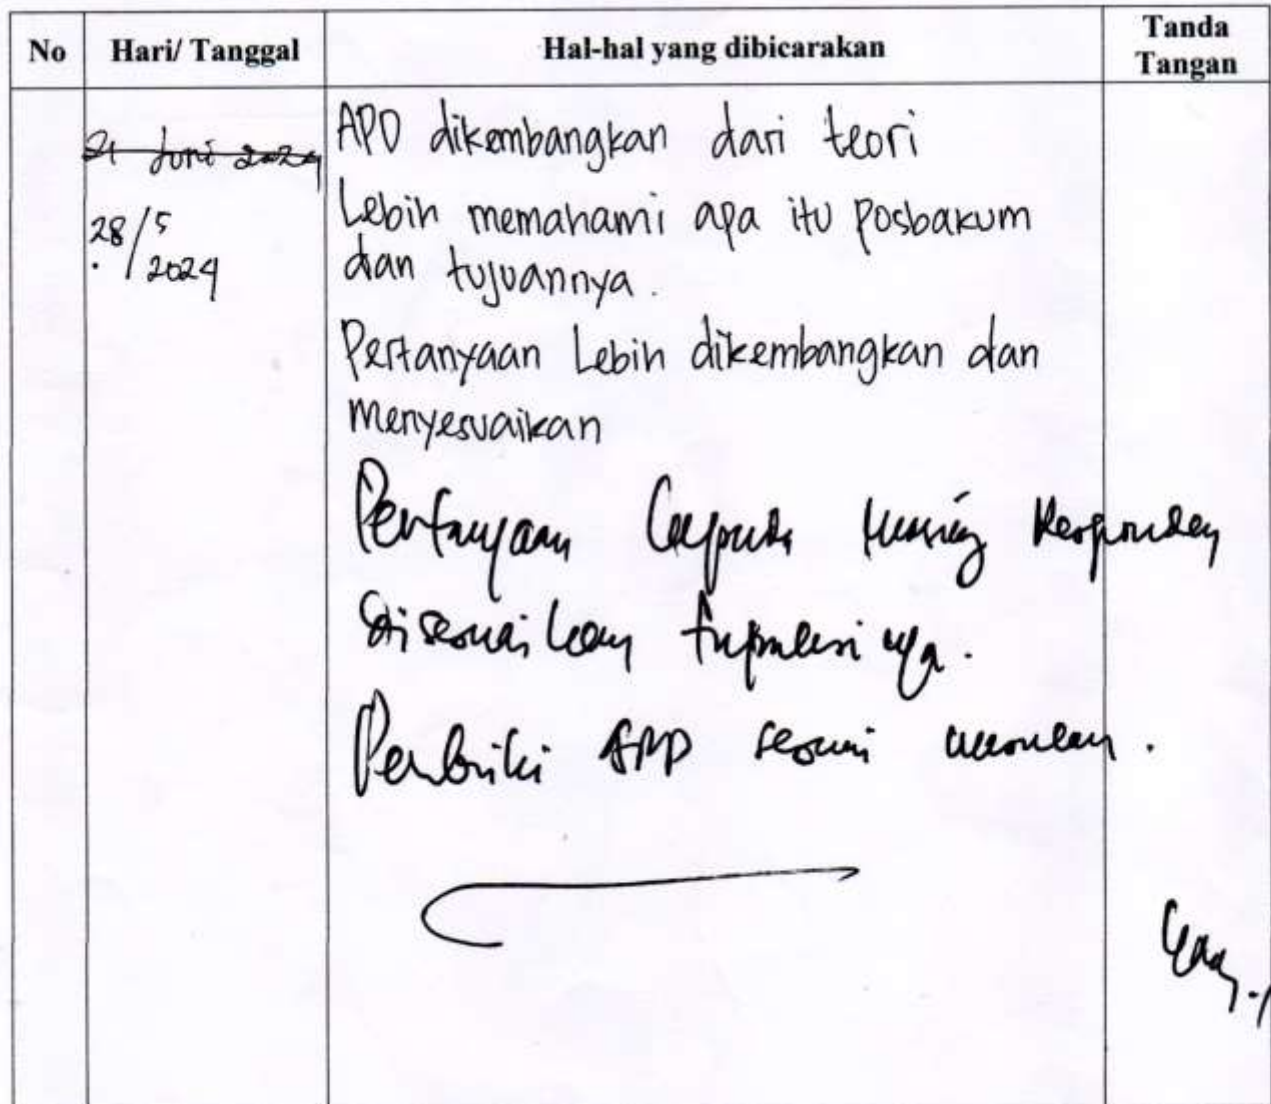 No Hari/ Tanggal Hal-hal yang dibicarakan Tanda Tangan
21 Juni 2024
28/5 2024
APD dikembangkan dari teori
Lebih memahami apa itu Posbakum
dan tujuannya.
Pertanyaan Lebih dikembangkan dan
menyesuaikan
Pertanyaan kepada masing Responden
disesuaikan tupoksi nya.
Perbaiki APD sesuai masukan.